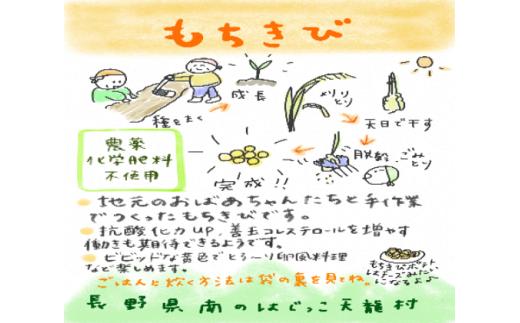 もちきび
種をまく
成長
メリリとり
天日で干す
脱齢・ごみとり
完成!!
農薬
化学肥料
不使用
地元のおばあちゃんたちと手作業
でつくったもちきびです。
抗酸化力UP、善玉コレステロールを増やす
働きも期待できるようです。
ビビッドな黄色でとろ〜り卵風料理
など楽しめます。
もちきびポテト
チーズみたい
になるよ♪
ごはんと炊く方法は袋の裏を見てね。
長野県南のはじっこ天龍村